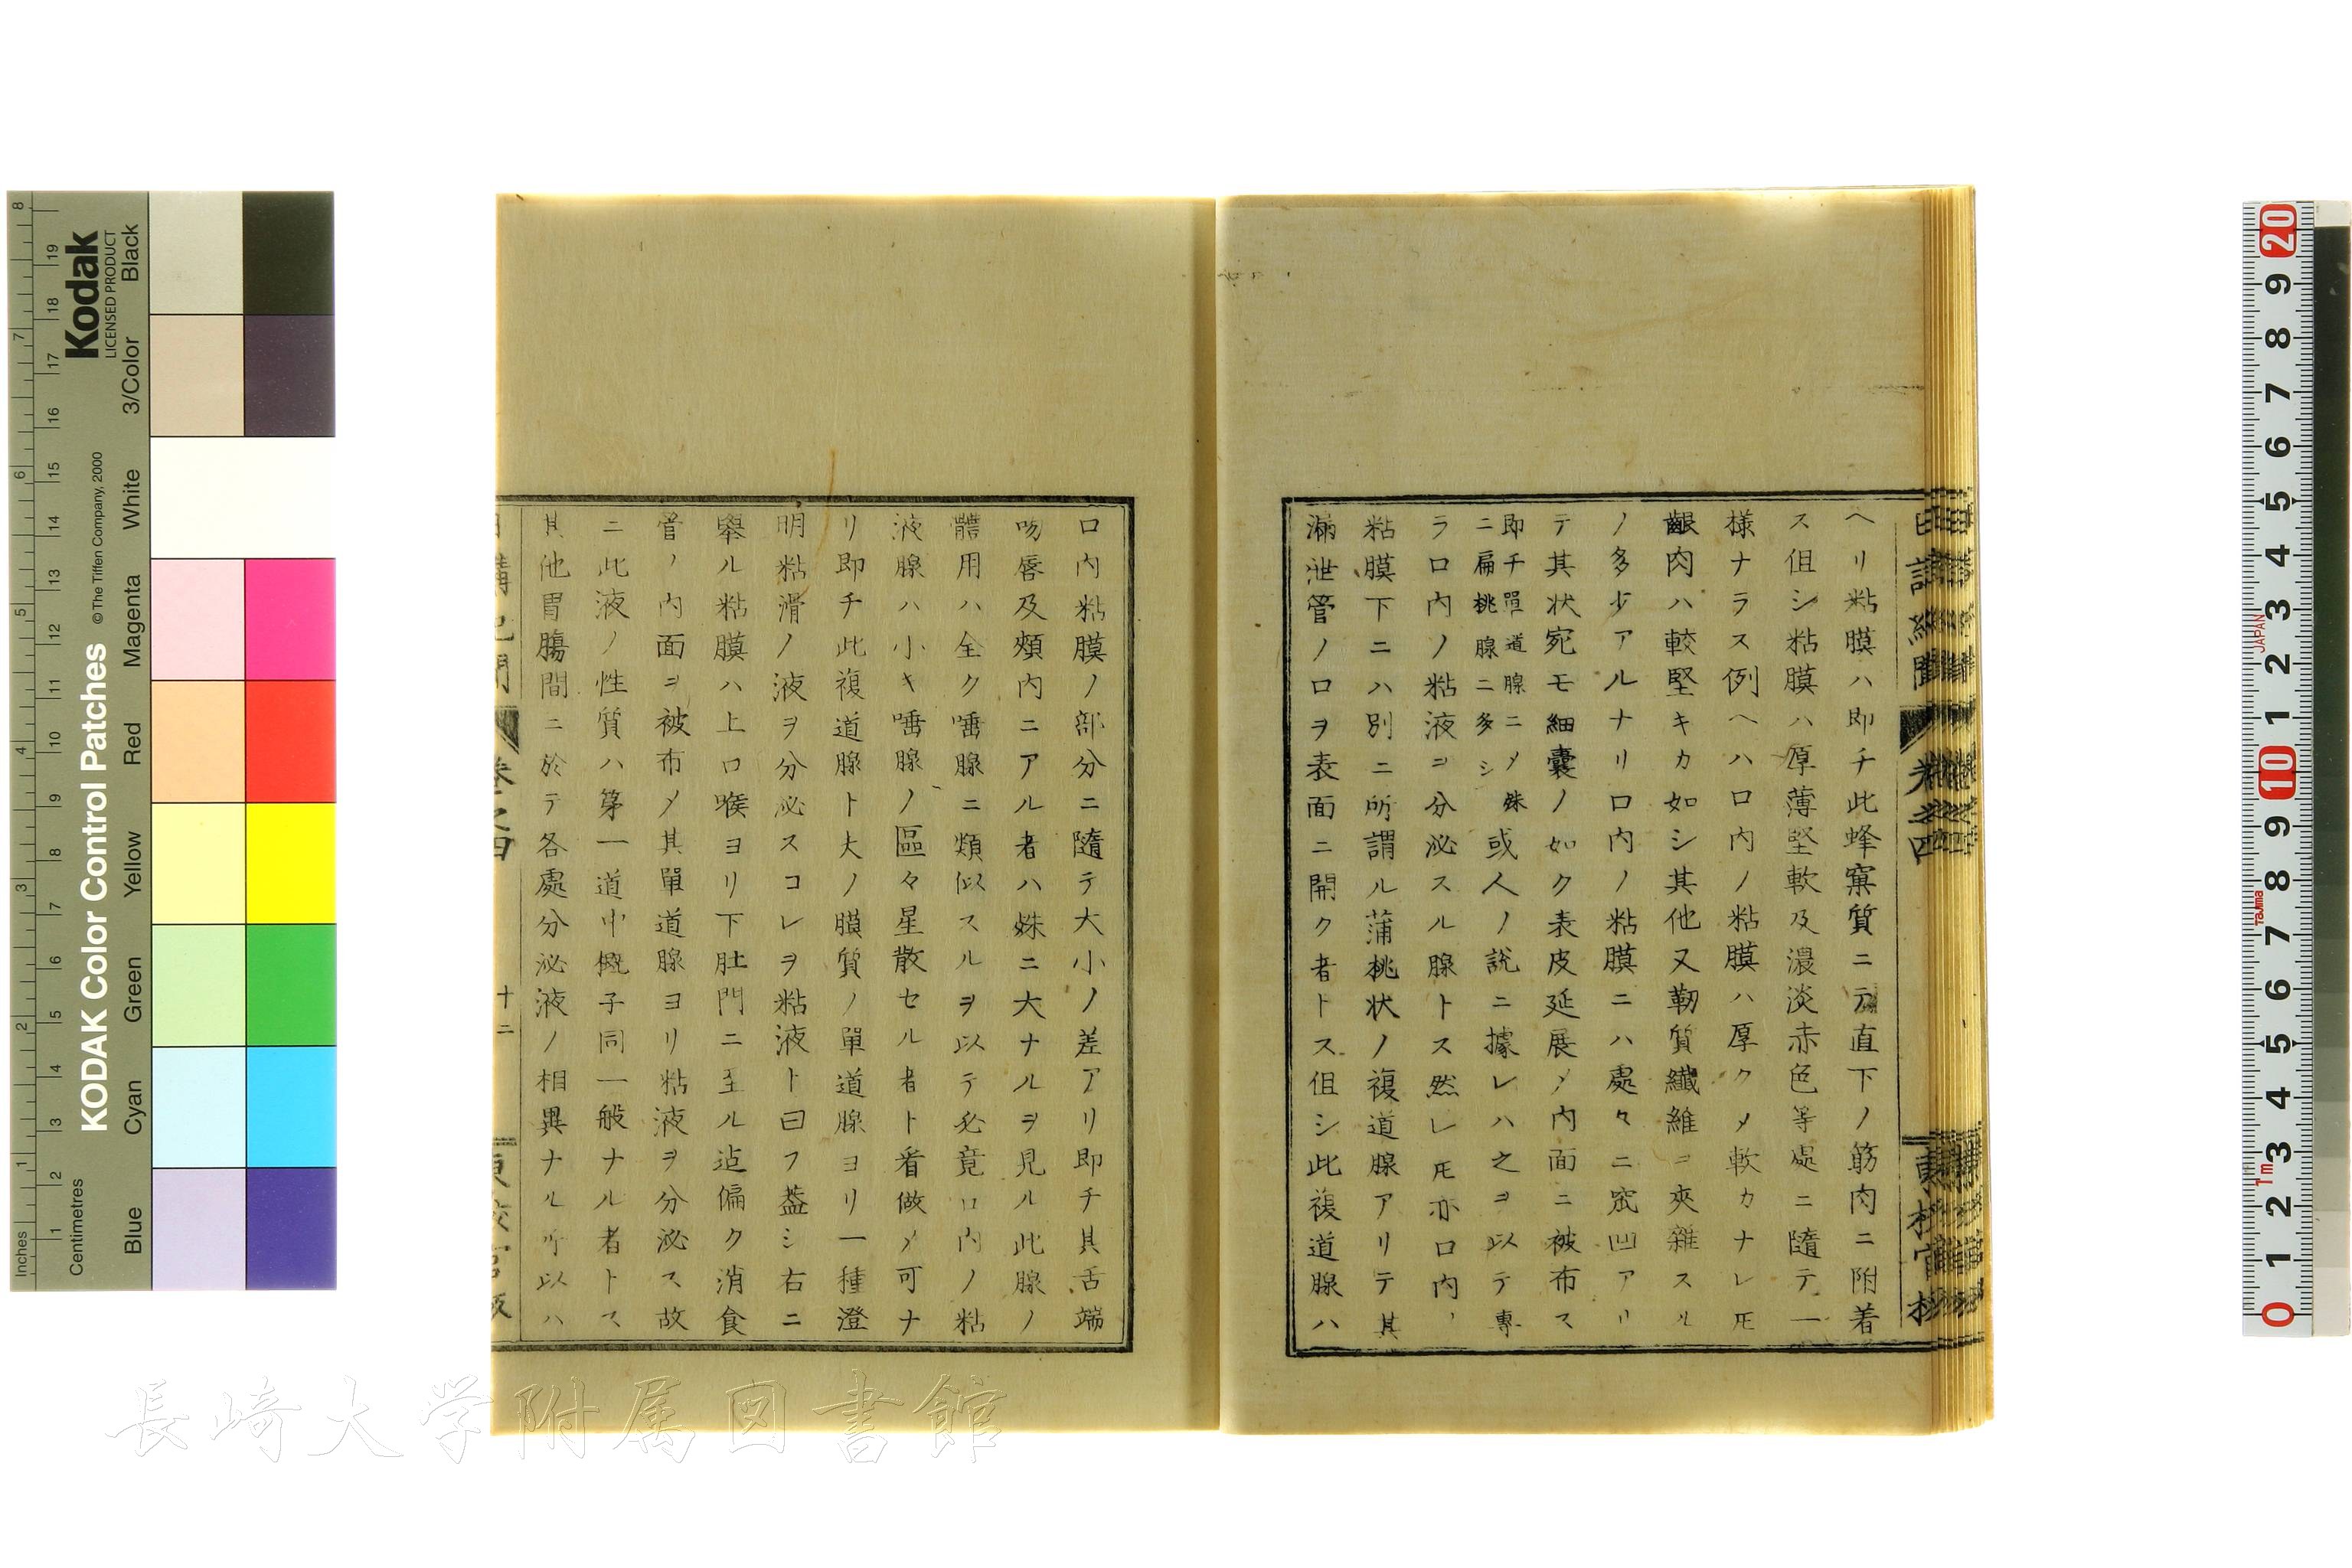 ヘリ粘膜ハ即チ此蜂窠質ニテ直下ノ筋肉ニ附着
ス但シ粘膜ハ厚薄堅軟及濃淡赤色等處ニ隨テ一
樣ナラス例ヘハ口内ノ粘膜ハ厚クメ軟カナレ𪜈
齦肉ハ較堅キカ如シ其他又靭質纎維ヲ夾雜スル
ノ多少アルナリ口内ノ粘膜ニハ處々ニ窊凹アリ
テ其状宛モ細囊ノ如ク表皮延展メ内面ニ被布ス
即チ單道腺ニメ殊
ニ扁桃腺ニ多シ
或人ノ說ニ據レハ之ヲ以テ專
ラ口内ノ粘液ヲ分泌スル腺トス然レ𪜈亦口内ノ
粘膜下ニハ別ニ所謂ル蒲桃状ノ複道腺アリテ其
滿泄管ノ口ヲ表面ニ開ク者トス但シ此複道腺ハ
口内粘膜ノ部分ニ隨テ大小ノ差アリ即チ其舌端
吻唇及頰内ニアル者ハ殊ニ大ナルヲ見ル此腺ノ
體用ハ全ク唾腺ニ類似スルヲ以テ必竟口内ノ粘
液腺ハ小キ唾腺ノ區々星散セル者ト看做メ可ナ
リ即チ此複道腺ト大ノ膜質ノ單道腺ヨリ一種澄
明粘滑ノ液ヲ分泌スコレヲ粘液ト曰フ蓋シ右ニ
擧ル粘膜ハ上口喉ヨリ下肚門ニ至ル迠偏ク消食
管ノ内面ヲ被布メ其單道腺ヨリ粘液ヲ分泌ス故
ニ此液ノ性質ハ第一道中槪子同一般ナル者トス
其他胃膓間ニ於テ各處分泌液ノ相異ナル所以ハ
日講記聞 卷之四 十二
長崎大学附属図書館
KODAK Color Control Patches
© The Tiffen Company, 2000
Kodak
LICENSED PRODUCT
Inches
Centimetres
Blue
Cyan
Green
Yellow
Red
Magenta
White
3/Color
Black
JAPAN
Tajima
1m